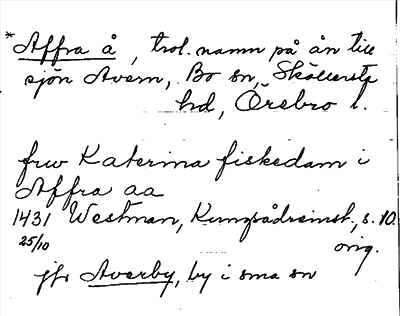 *Affra å, trol. namn på ån till
sjön Avern, Bo sn, Skyllersta
hd, Örebro l.
frw Katerina fiskedam i
Affra aa
1431 Westman, Kungsådreinst., s. 10
25/10 orig.
jfr Averby, by i sma sn